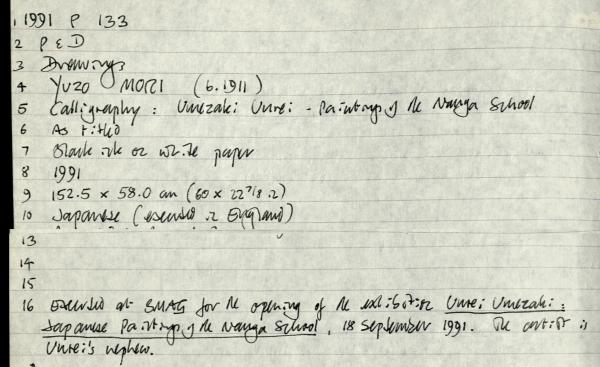 1 1991 P 133
2 P & D
3 Drawings
4 YUZO MORI (b.1911)
5 Calligraphy : Umezaki Unrei - Paintings of the Nanga School
6 As titled
7 Black ink on white paper
8 1991
9 152.5 x 58.0 cm (60 x 22 7/8 in)
10 Japanese (executed in England)
13
14
15
16 Executed at SMAG for the opening of the exhibition Unrei Umezaki :
Japanese Paintings of the Nanga School, 18 September 1991. The artist is
Unrei's nephew.